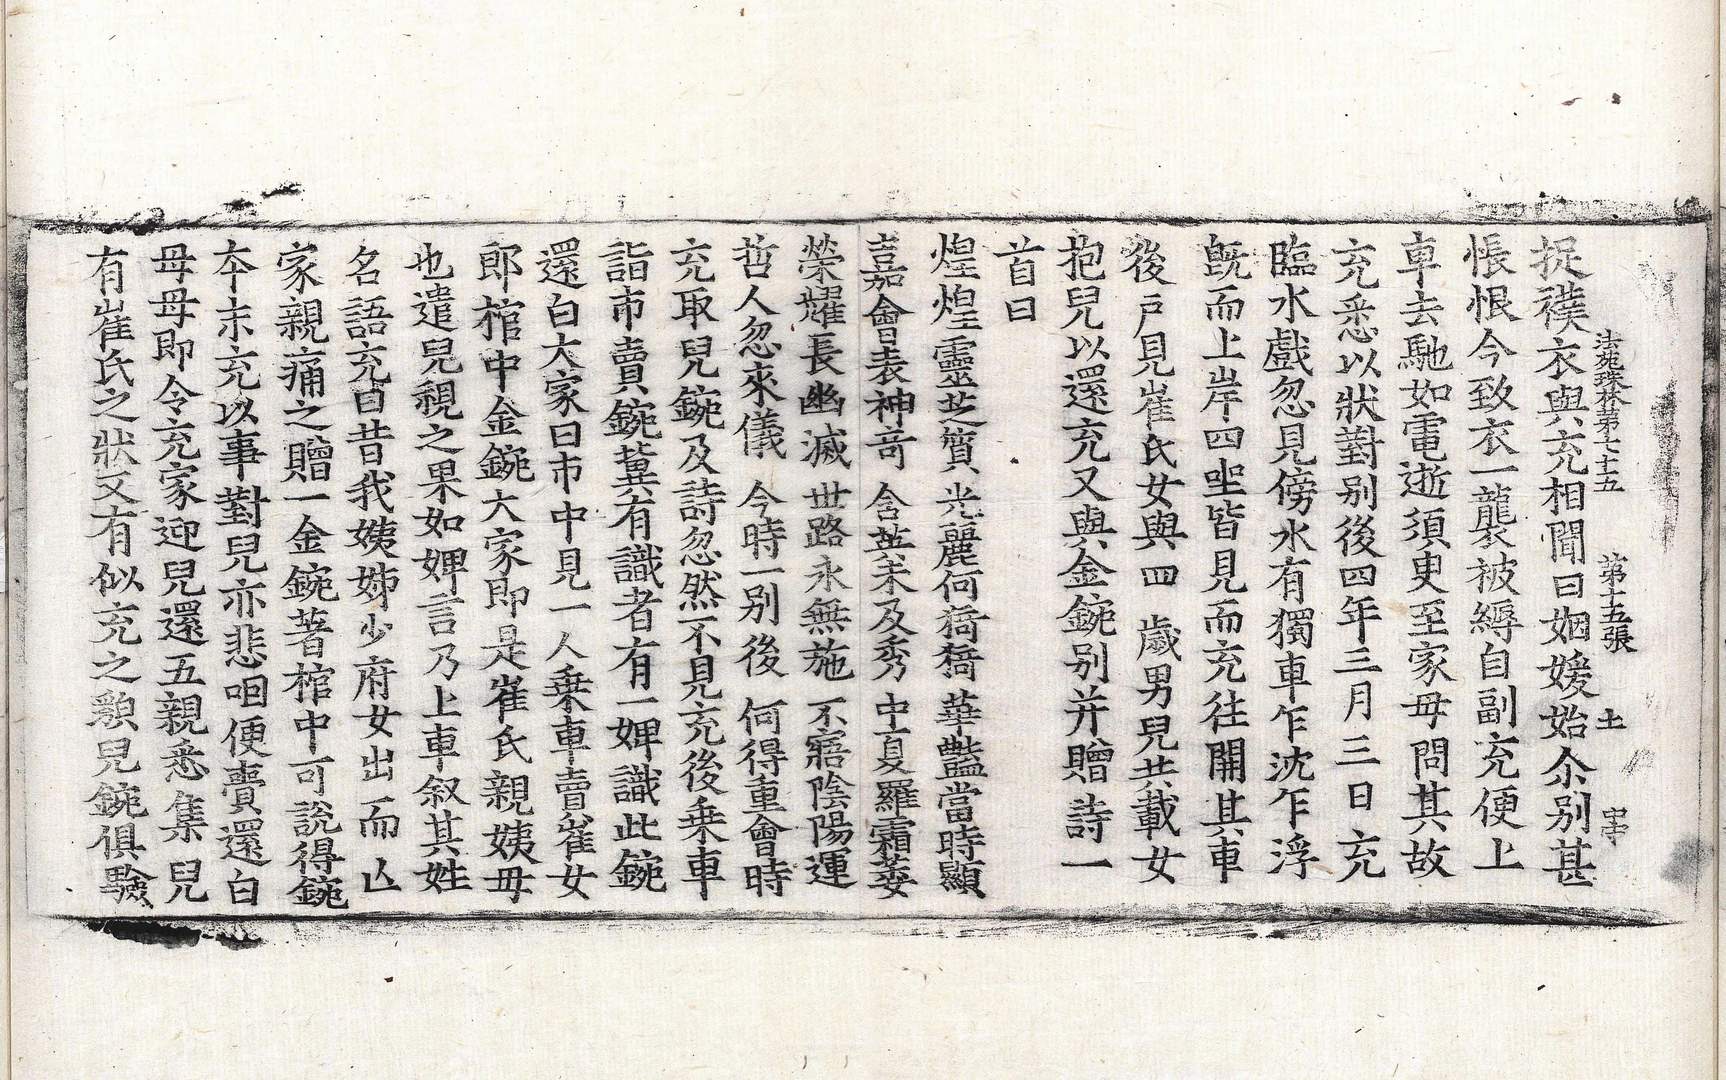 法苑珠林第七十五 第十五張 土
捉襆衣與充相聞曰姻媛始尒別甚
悵恨今致衣一襲被縟自副充便上
車去馳如電逝須臾至家母問其故
充悉以狀對別後四年三月三日充
臨水戲忽見傍水有獨車乍沈乍浮
旣而上岸四坐皆見而充往開其車
後戶見崔氏女與四歲男兒共載女
抱兒以還充又與金鋺別并贈詩一
首曰
煌煌靈芝質 光麗何猗猗 華豔當時顯
嘉會表神奇 含英未及秀 中夏羅霜萎
榮耀長幽滅 世路永無施 不寤陰陽運
哲人忽來儀 今時一別後 何得重會時
充取兒鋺及詩忽然不見充後乗車
詣市賣鋺冀有識者有一婢識此鋺
還白大家曰市中見一人乗車賣崔女
郎棺中金鋺大家即是崔氏親姨母
也遣兒視之果如婢言乃上車叙其姓
名語充曰昔我姨姊少府女出而亾
家親痛之贈一金鋺著棺中可說得鋺
夲末充以事對兒亦悲咽便賷還白
母母即令充家迎兒還五親悉集兒
有崔氏之狀又有似充之顡兒鋺俱驗